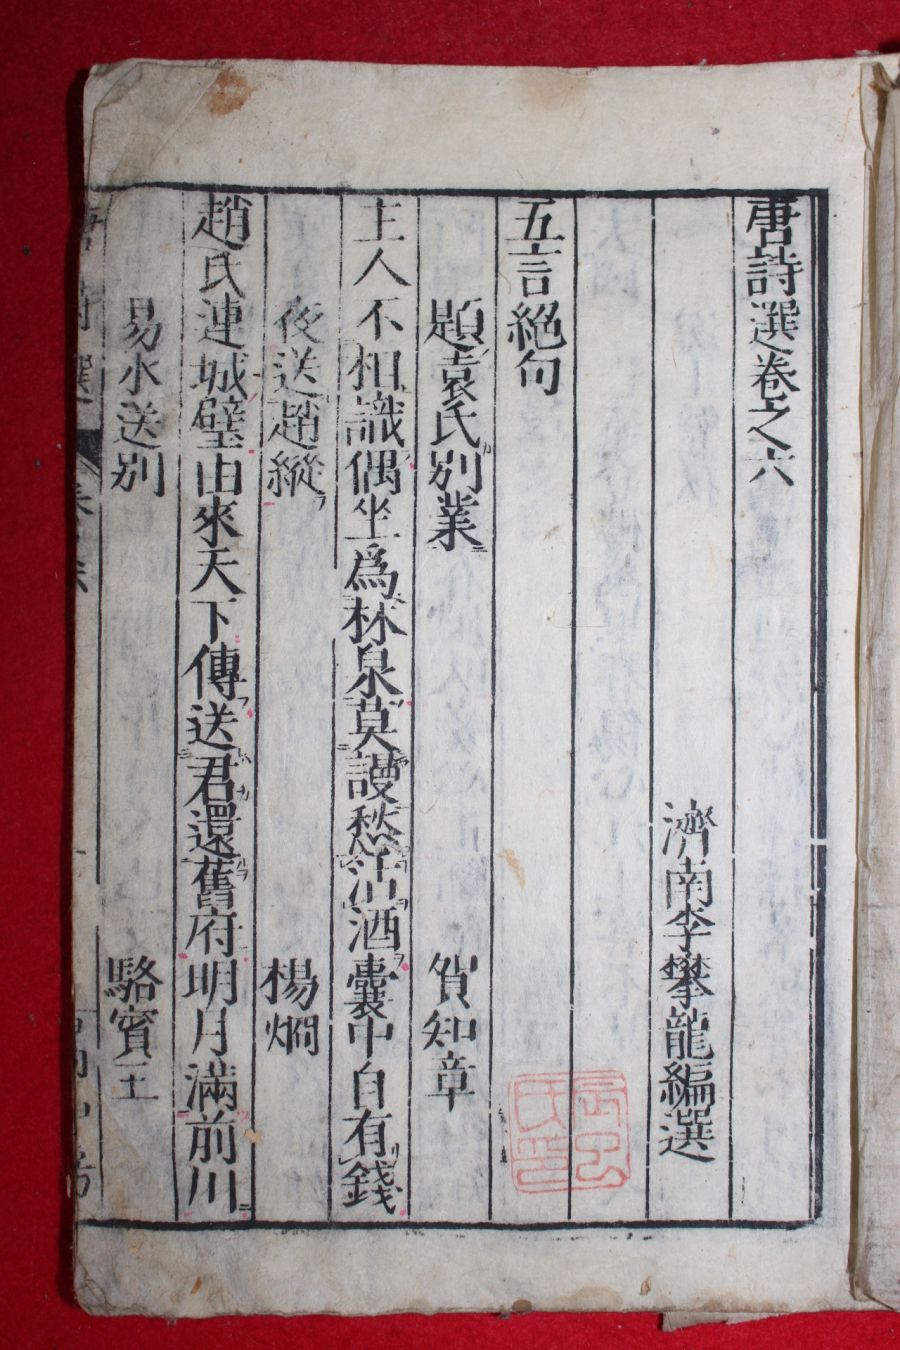 唐詩選卷之六
濟南李攀龍編選
五言絕句
題袁氏別業 賀知章
主人不相識偶坐爲林泉莫謾愁沽酒囊中自有錢
夜送趙縱 楊烱
趙氏連城璧由來天下傳送君還舊府明月滿前川
易水送別 駱賓王